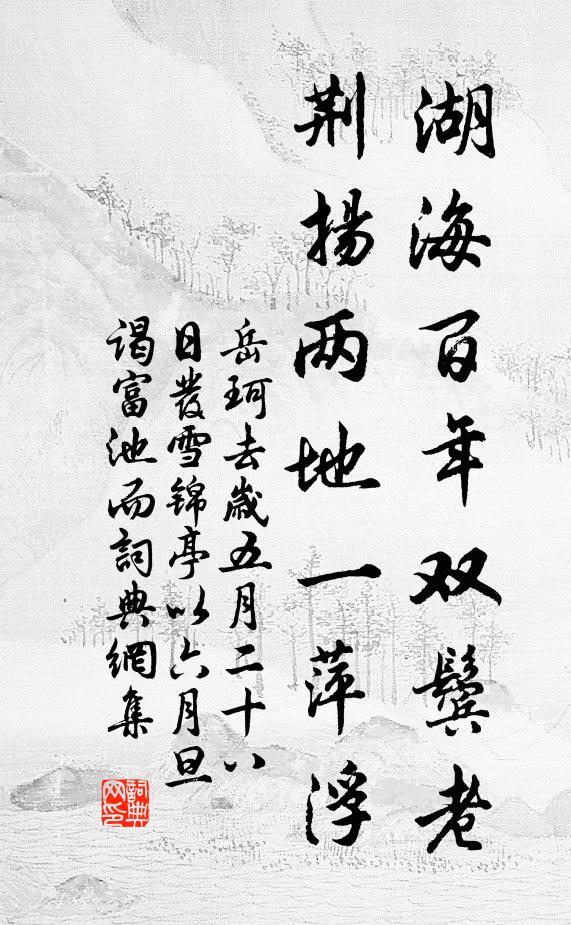 湖海百年双鬓老
荆揚两地一萍浮
岳珂去歲五月二十八
日發雪錦亭以六月旦
谒富池而詞典網集
詞典网印